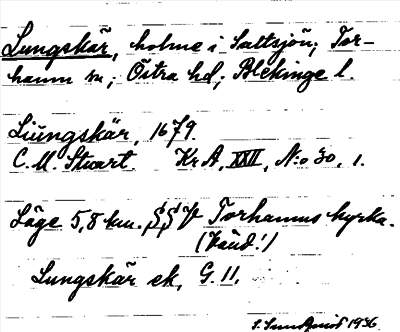 Lungskär, holme i Saltsjön; Tor-
hamn sn; Östra hd; Blekinge l.
Liüngskär, 1679.
C. M. Stuart. Kr A, XXII, N:o 30, 1.
Läge 5,8 km. SSV Torhamns kyrka.
(Känd!)
Lungskär ek, G. 11.
1936